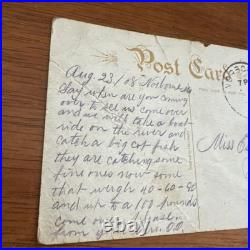 Post Card
Aug. 23/08 Norborne Mo
Say when are you coming
over to see us come over
and we will take a boat
ride on the river and
catch a big cat fish
they are catching some
fine ones now some
that weigh 40-60-80
and up to a 100 pounds
come over
from
Miss